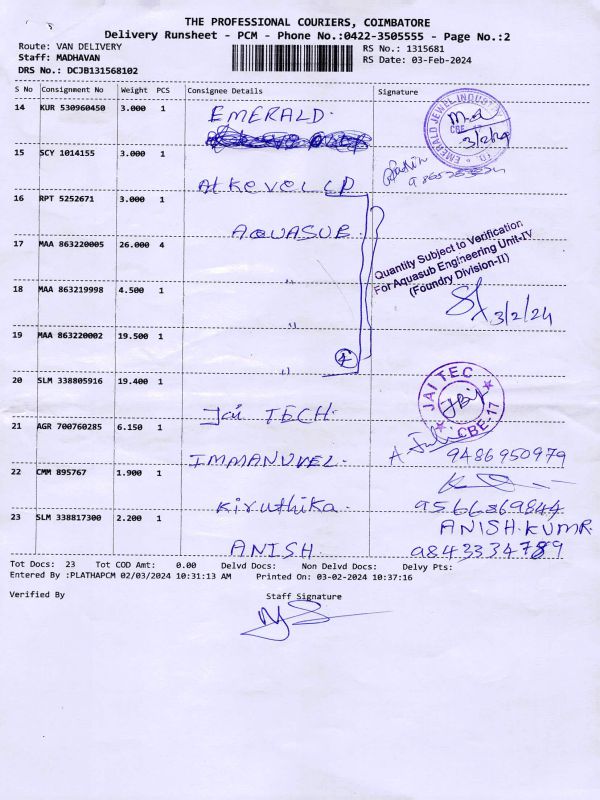 THE PROFESSIONAL COURIERS, COIMBATORE
Delivery Runsheet - PCM - Phone No.:0422-3505555 - Page No.:2
Route: VAN DELIVERY
RS No.: 1315681
Staff: MADHAVAN
RS Date: 03-Feb-2024
DRS No.: DCJB131568102
S No Consignment No Weight PCS Consignee Details Signature
14 KUR 530960450 3.000 1 EMERALD
EMERALD JEWEL INDUST
CBE
3/2/24
15 SCY 1014155 3.000 1
16 RPT 5252671 3.000 1
AQUASUB
17 MAA 863220005 26.000 4
Quantity Subject to Verification
For Aquasub Engineering Unit-IV
(Foundry Division-II)
18 MAA 863219998 4.500 1 "
3/2/24
19 MAA 863220002 19.500 1 "
20 SLM 338805916 19.400 1 "
JAI TEC
CBE-17
Jai TECH.
21 AGR 700760285 6.150 1
9486950979
IMMANUVEL
22 CMM 895767 1.900 1
Kiruthika
9566869844
23 SLM 338817300 2.200 1
ANISH.KUMR
ANISH
9843334789
Tot Docs: 23 Tot COD Amt: 0.00 Delvd Docs: Non Delvd Docs: Delvy Pts:
Entered By :PLATHAPCM 02/03/2024 10:31:13 AM Printed On: 03-02-2024 10:37:16
Verified By Staff Signature